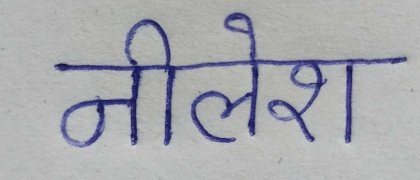 नीलेश